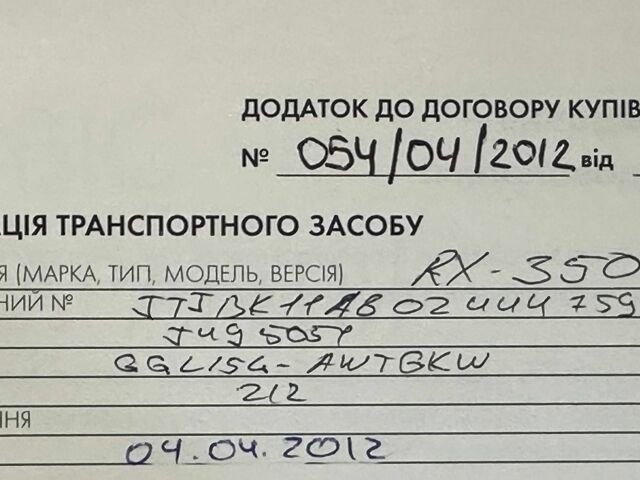 ДОДАТОК ДО ДОГОВОРУ КУПІВ
№ 054/04/2012 від
ЦІЯ ТРАНСПОРТНОГО ЗАСОБУ
Я (МАРКА, ТИП, МОДЕЛЬ, ВЕРСІЯ) RX-350
НИЙ № JTJBK11AB02444759
GGL15L-AWTGKW
212
ННЯ
04.04.2012